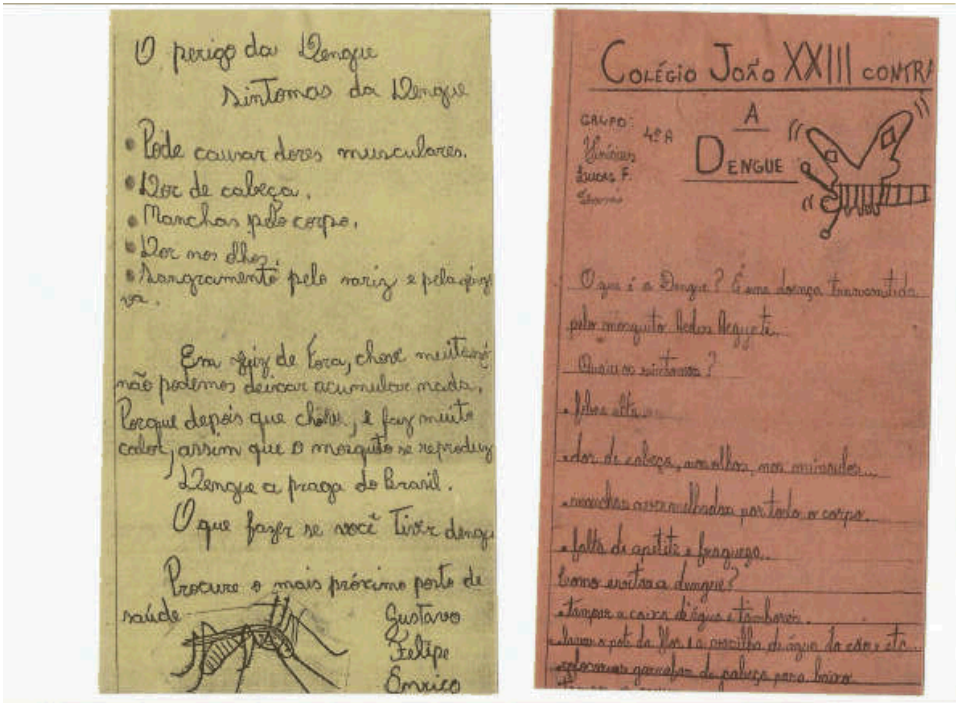 O perigo da Dengue
Sintomas da Dengue
• Pode causar dores musculares.
• Dor de cabeça.
• Manchas pelo corpo.
• Dor nos olhos.
• Sangramento pelo nariz e pela geng
va.
Em Juiz de Fora, chove muito
não podemos deixar acumular nada.
Porque depois que chove, e faz muito
calor, assim que o mosquito se reproduz
Dengue a praga do Brasil.
O que fazer se você tiver dengu
Procure o mais próximo posto de
saúde
Gustavo
Felipe
Enrico
COLÉGIO JOÃO XXIII CONTRA
A
DENGUE
GRUPO: 4ª A
Vinícius
Lucas F.
O que é a Dengue? É uma doença transmitida
pelo mosquito Aedes Aegypti.
Quais os sintomas?
• febre alta
• dor de cabeça, nos olhos, nos músculos...
• manchas avermelhadas por todo o corpo.
• falta de apetite e fraqueza.
Como evitar a dengue?
• tampar a caixa d'água e tambores.
• lavar o pote da flor e a vasilha de água do cão e etc.
garrafas de cabeça para baixo